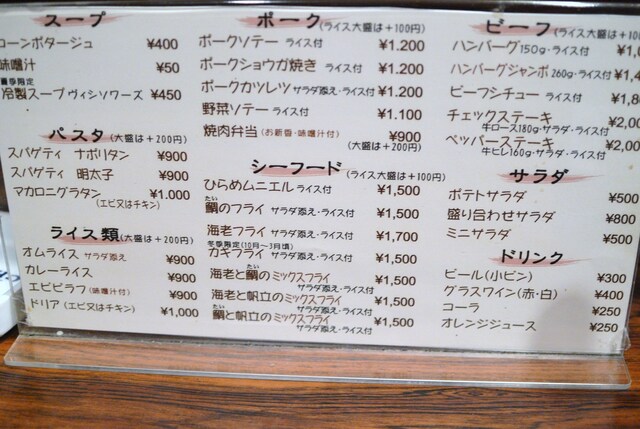 スープ
コーンポタージュ ¥400
味噌汁 ¥50
夏季限定
冷製スープ ヴィシソワーズ ¥450
パスタ (大盛は+200円)
スパゲティ ナポリタン ¥900
スパゲティ 明太子 ¥900
マカロニグラタン ¥1.000
(エビ又はチキン)
ライス類 (大盛は+200円)
オムライス サラダ添え ¥900
カレーライス ¥900
エビピラフ (味噌汁付) ¥900
ドリア (エビ又はチキン) ¥1,000
ポーク (ライス大盛は+100円)
ポークソテー ライス付 ¥1.200
ポークショウガ焼き ライス付 ¥1.200
ポークカツレツ サラダ添え・ライス付 ¥1.200
野菜ソテー ライス付 ¥1.100
焼肉弁当 (お新香・味噌汁付) ¥900
(大盛は+200円)
シーフード (ライス大盛は+100円)
ひらめムニエル ライス付 ¥1,500
たい
鯛のフライ サラダ添え・ライス付 ¥1,500
海老フライ サラダ添え・ライス付 ¥1,700
冬季限定(10月〜3月頃)
カキフライ サラダ添え・ライス付 ¥1,500
たい
海老と鯛のミックスフライ ¥1,500
サラダ添え・ライス付
海老と帆立のミックスフライ ¥1,500
サラダ添え・ライス付
たい
鯛と帆立のミックスフライ ¥1,500
サラダ添え・ライス付
ビーフ (ライス大盛は+10
ハンバーグ 150g・ライス付 ¥1,
ハンバーグジャンボ 260g・ライス付 ¥1,
ビーフシチュー ライス付 ¥1,
チェックステーキ ¥2,00
牛ロース180g・サラダ・ライス付
ペッパーステーキ ¥2,00
牛ヒレ160g・サラダ・ライス付
サラダ
ポテトサラダ ¥500
盛り合わせサラダ ¥800
ミニサラダ ¥500
ドリンク
ビール(小ビン) ¥300
グラスワイン(赤・白) ¥400
コーラ ¥250
オレンジジュース ¥250